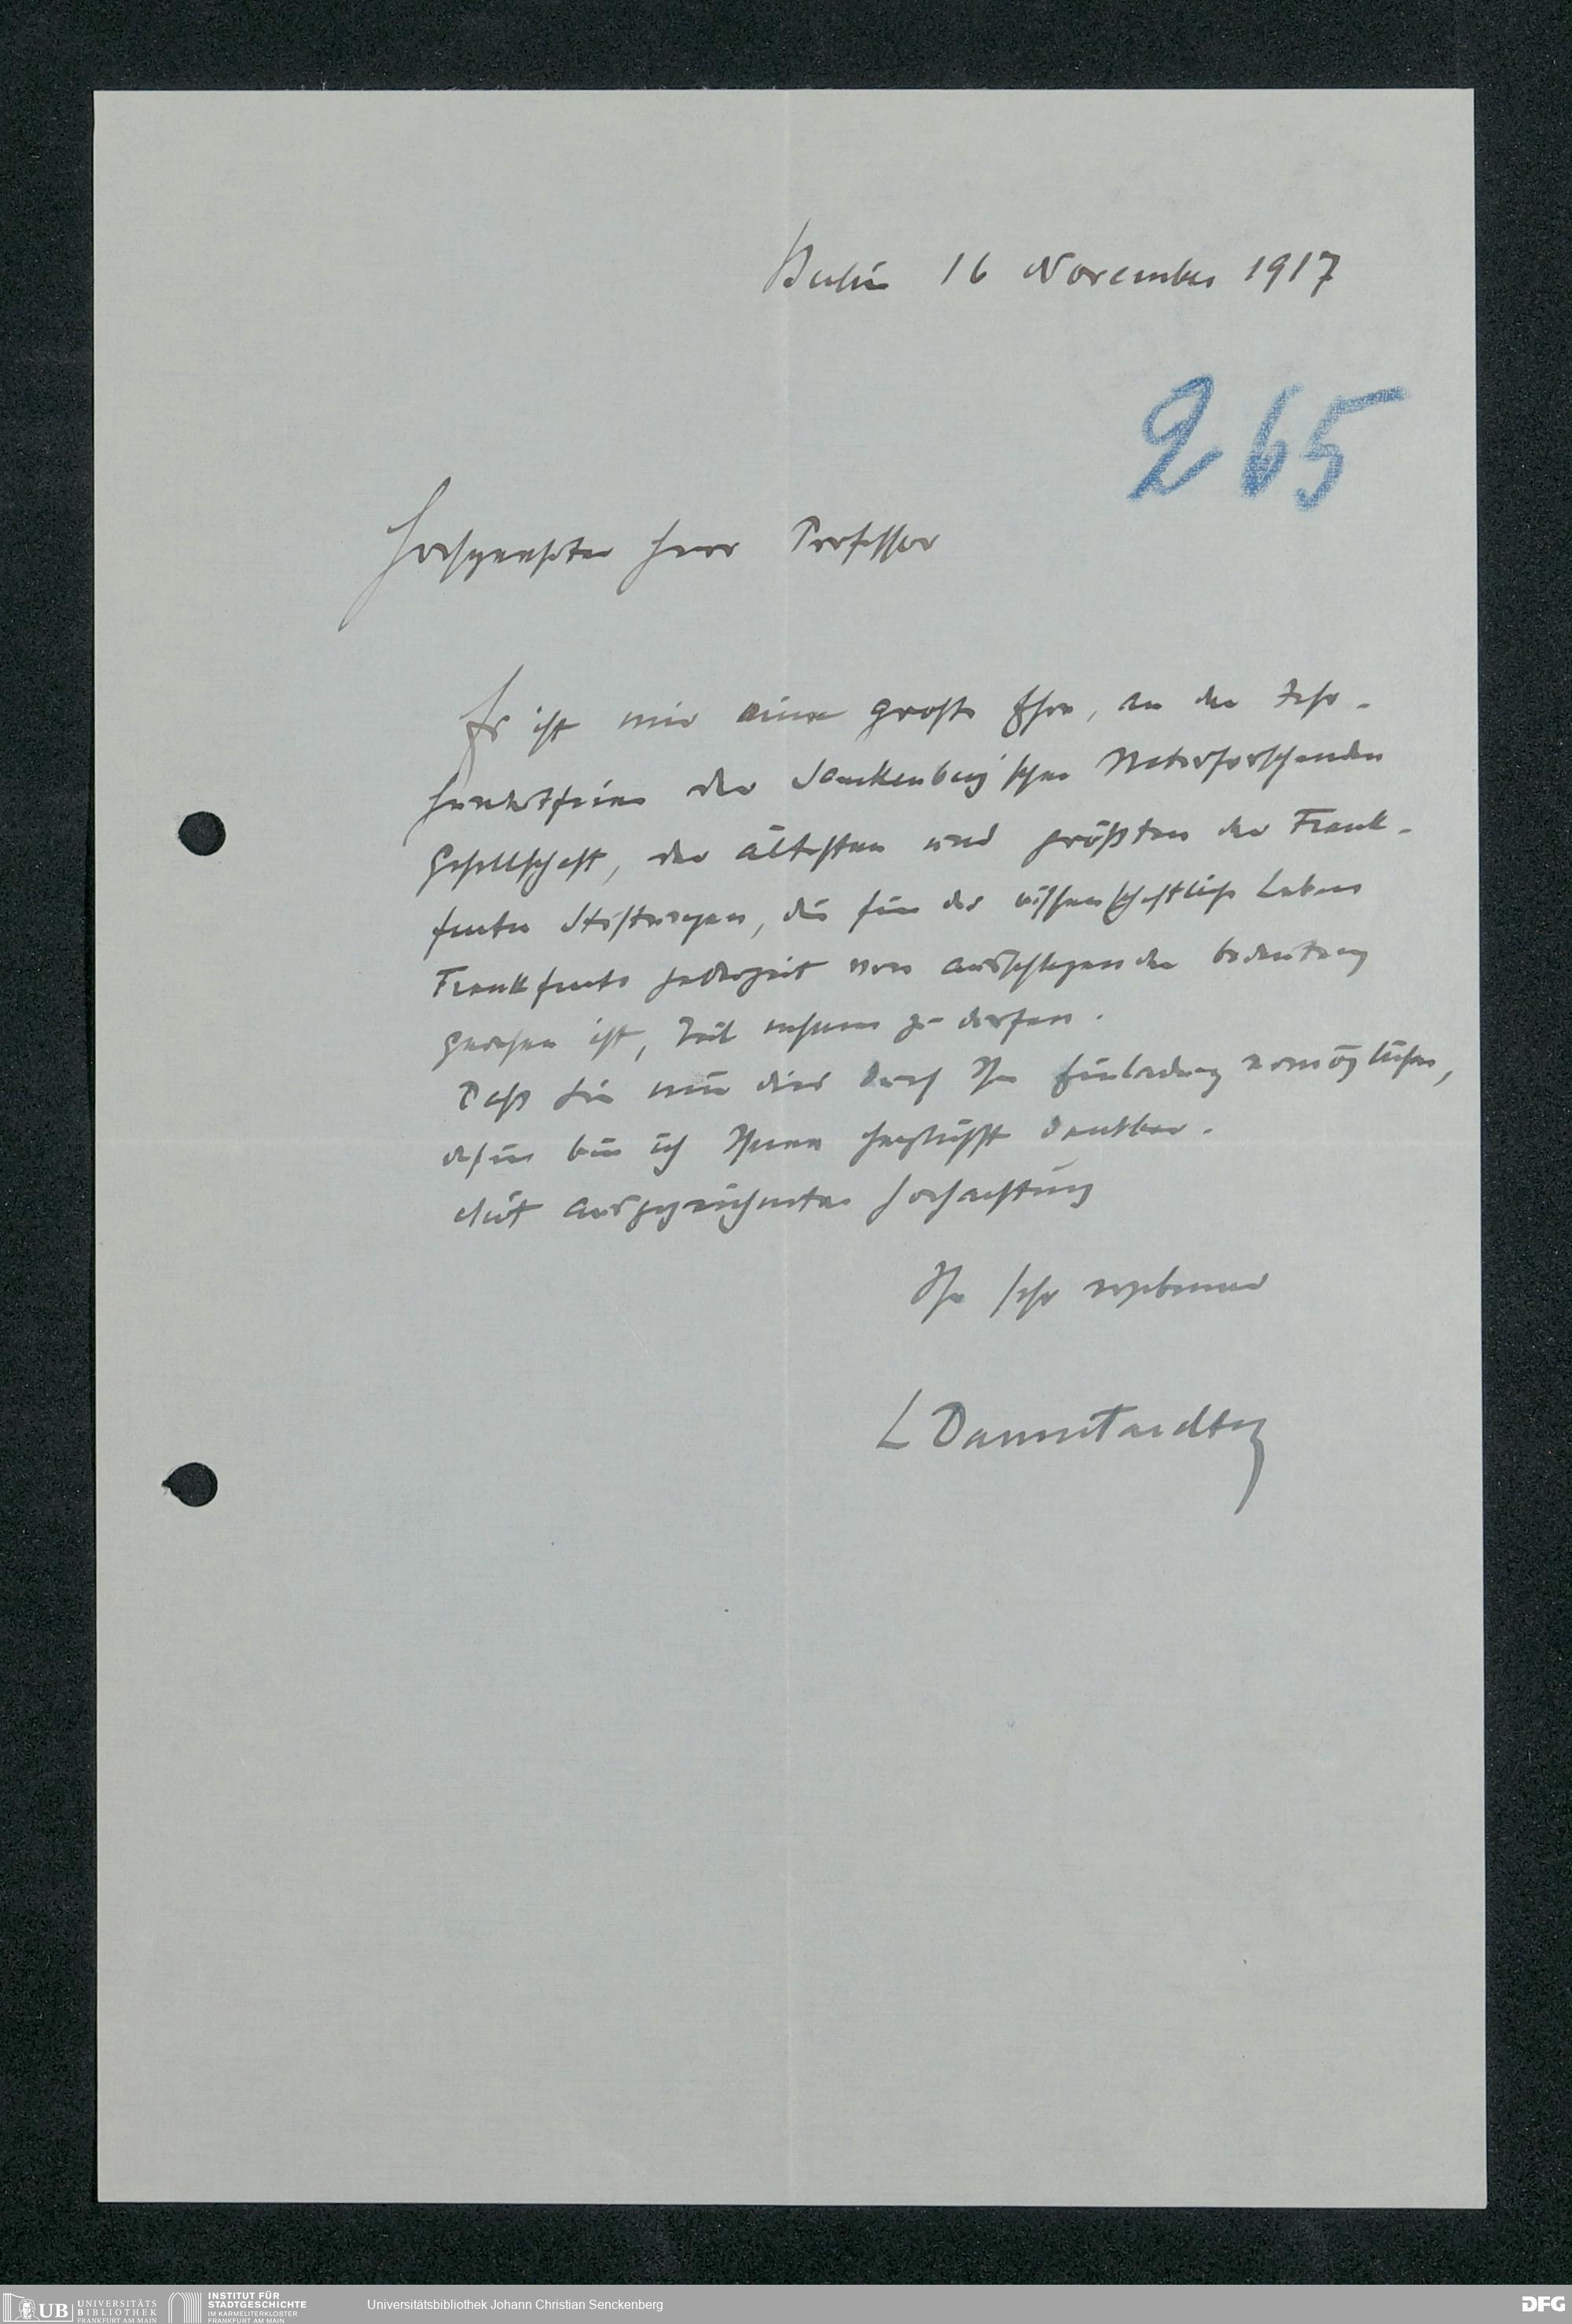 Berlin 16 November 1917
265
Hochgeehrter Herr Professor
Es ist mir eine große Ehre, an der Jahr-
hundertfeier der Senckenberg'schen Naturforschenden
Gesellschaft, der ältesten und größten der Frank-
furter Stiftungen, die für das wissenschaftliche Leben
Frankfurts jederzeit von ausschlagender Bedeutung
gewesen ist, Teil nehmen zu dürfen.
Daß Sie mir dies durch Ihre Einladung ermöglichen,
dafür bin ich Ihnen herzlichst dankbar.
Mit ausgezeichneter Hochachtung
Ihr sehr ergebener
L Darmstaedter
UB UNIVERSITÄTS
BIBLIOTHEK
FRANKFURT AM MAIN
INSTITUT FÜR
STADTGESCHICHTE
IM KARMELITERKLOSTER
FRANKFURT AM MAIN
Universitätsbibliothek Johann Christian Senckenberg
DFG